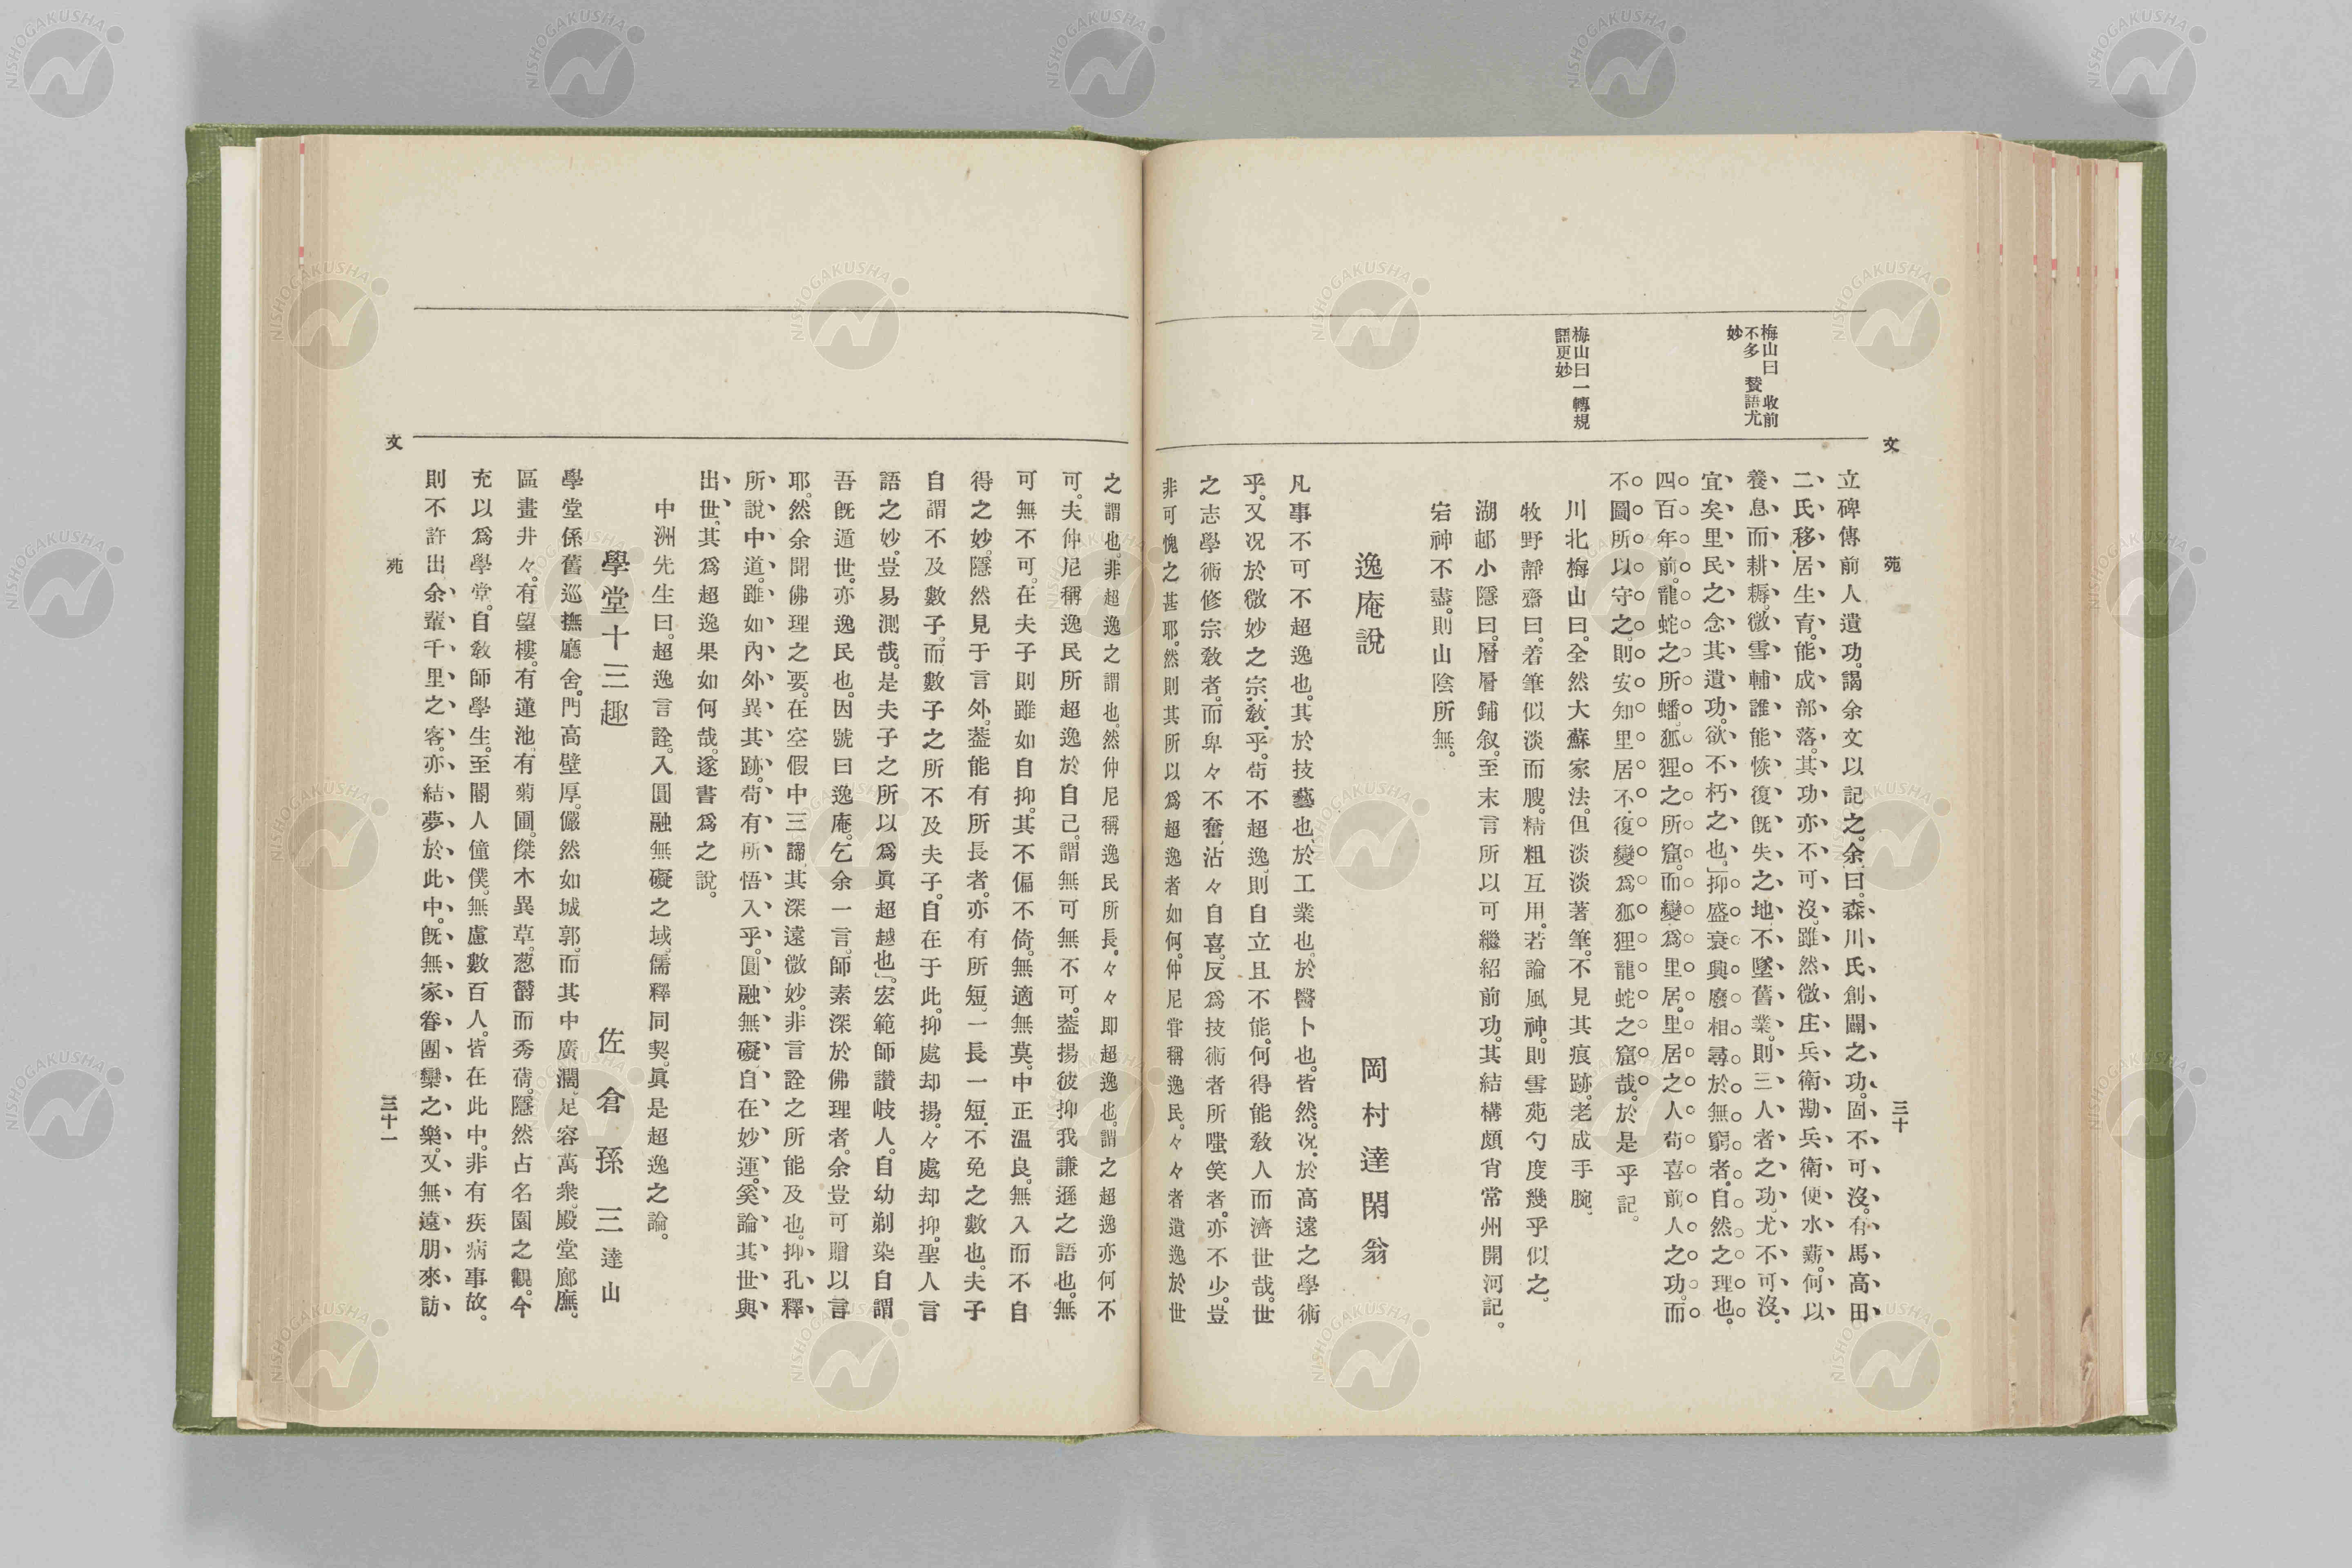 文　苑　三十
梅山曰　收前
不多　贊語尤
妙
梅山曰一轉規
語更妙
立碑傳前人遺功。謁余文以記之。余曰。森川氏創闢之功。固不可沒。有馬高田
二氏移居生育。能成部落。其功亦不可沒。雖然微庄兵衛勘兵衛便水薪。何以
養息而耕耨。微雪輔誰能恢復旣失之地、不墜舊業。則三人者之功、尤不可沒。
宜矣里民之念其遺功。欲不朽之也」抑盛衰興廢相尋於無窮者。自然之理也。
四百年前。龍蛇之所蟠。狐狸之所窟。而變爲里居。里居之人苟喜前人之功。而
不圖所以守之。則安知里居不復變爲狐狸龍蛇之窟哉。於是乎記。
川北梅山曰。全然大蘇家法。但淡淡著筆。不見其痕跡。老成手腕。
牧野靜齋曰。着筆似淡而腴。精粗互用。若論風神。則雪苑勺度幾乎似之。
湖邨小隱曰。層層鋪叙。至末言所以可繼紹前功。其結構頗肖常州開河記。
宕神不盡。則山陰所無。
逸庵說　岡村達閑翁
凡事不可不超逸也。其於技藝也、於工業也。於醫卜也。皆然。况於高遠之學術
乎。又况於微妙之宗敎乎。苟不超逸、則自立且不能。何得能敎人而濟世哉。世
之志學術修宗敎者。而卑々不奮、沾々自喜。反爲技術者所嗤笑者。亦不少。豈
非可愧之甚耶。然則其所以爲超逸者如何。仲尼甞稱逸民。々々者遺逸於世
之謂也。非超逸之謂也。然仲尼稱逸民所長。々々卽超逸也。謂之超逸亦何不
可。夫仲尼稱逸民所超逸於自己。謂無可無不可。葢揚彼抑我謙遜之語也。無
可無不可。在夫子則雖如自抑。其不偏不倚。無適無莫。中正温良。無入而不自
得之妙。隱然見于言外。葢能有所長者。亦有所短、一長一短、不免之數也。夫子
自謂不及數子。而數子之所不及夫子。自在于此。抑處却揚。々處却抑。聖人言
語之妙。豈易測哉。是夫子之所以爲眞超越也」宏範師讃岐人。自幼剃染自謂
吾旣遁世。亦逸民也。因號曰逸庵。乞余一言。師素深於佛理者。余豈可贈以言
耶。然余聞佛理之要。在空假中三諦、其深遠微妙。非言詮之所能及也。抑孔釋
所說中道。雖如內外異其跡。苟有所悟入乎。圓融無礙、自在妙運。奚論其世與
出世。其爲超逸果如何哉。遂書爲之說。
中洲先生曰。超逸言詮。入圓融無礙之域、儒釋同契。眞是超逸之論。
學堂十三趣　佐倉孫三達山
學堂係舊巡撫廳舍。門高壁厚。儼然如城郭。而其中廣濶、足容萬衆、殿堂廊廡。
區畫井々。有望樓。有蓮池、有菊圃。傑木異草。葱欝而秀蒨。隱然占名園之觀。今
充以爲學堂。自敎師學生。至閽人僮僕、無慮數百人。皆在此中。非有疾病事故。
則不許出余輩千里之客。亦結夢於此中。旣無家眷團欒之樂。又無遠朋來訪
文　苑　三十一